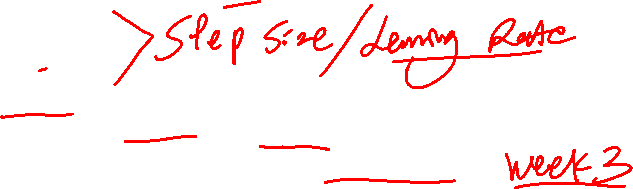 > Step Size/Learning Rate
Week 3